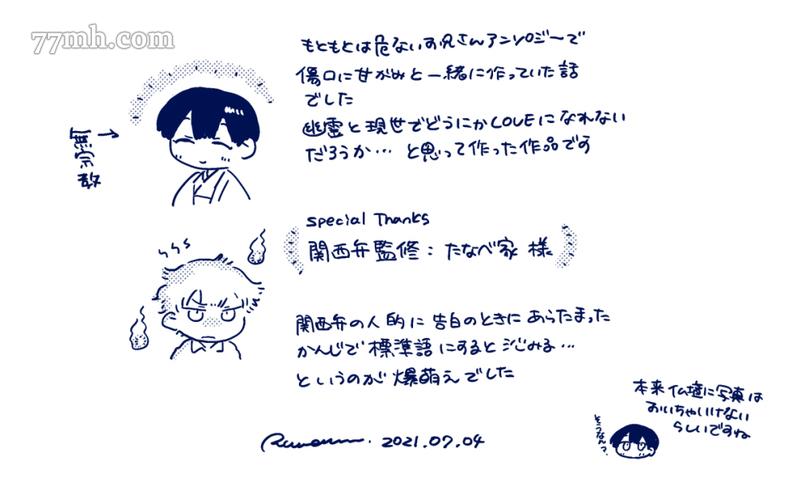 77mh.com
もともとは危ないお兄さんアンソロジーで
傷口に甘がみと一緒に作っていた話
でした
幽霊と現世でどうにかLOVEになれない
だろうか… と思って作った作品です
無宗教
special Thanks
関西弁監修：たなべ家 様
関西弁の人的に 告白のときに あらたまった
かんじで 標準語にすると 沁みる…
というのが 爆萌えでした
本来 仏壇に写真は
おいちゃいけない
らしいですね
そうなん?
2021.07.04